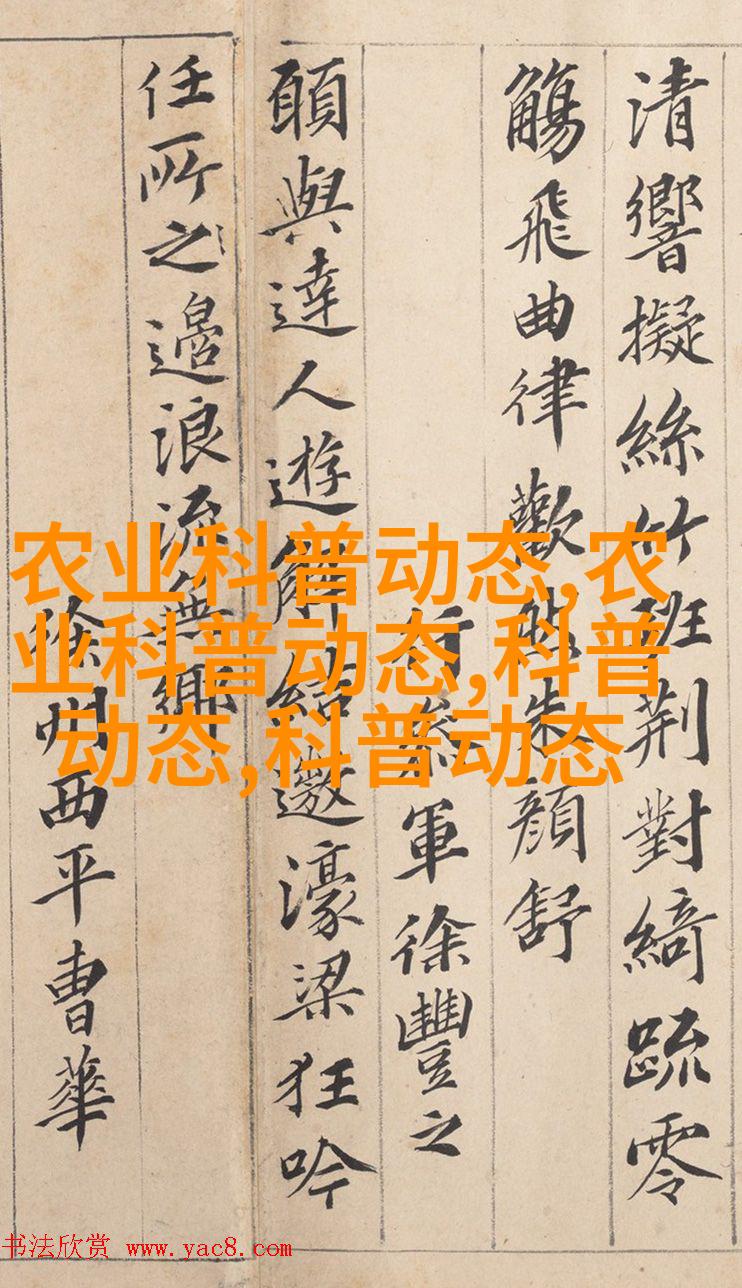 清響擬絲竹班荆對綺疏零
觴飛曲律歡然朱顏舒
行參軍徐豐之
願與達人遊解結遨濠梁狂吟
任所之邉浪流無鄉
徐州西平曹華
农业科普动态,农
业科普动态,科普
动态,科普动态
书法欣赏 www.yac8.com